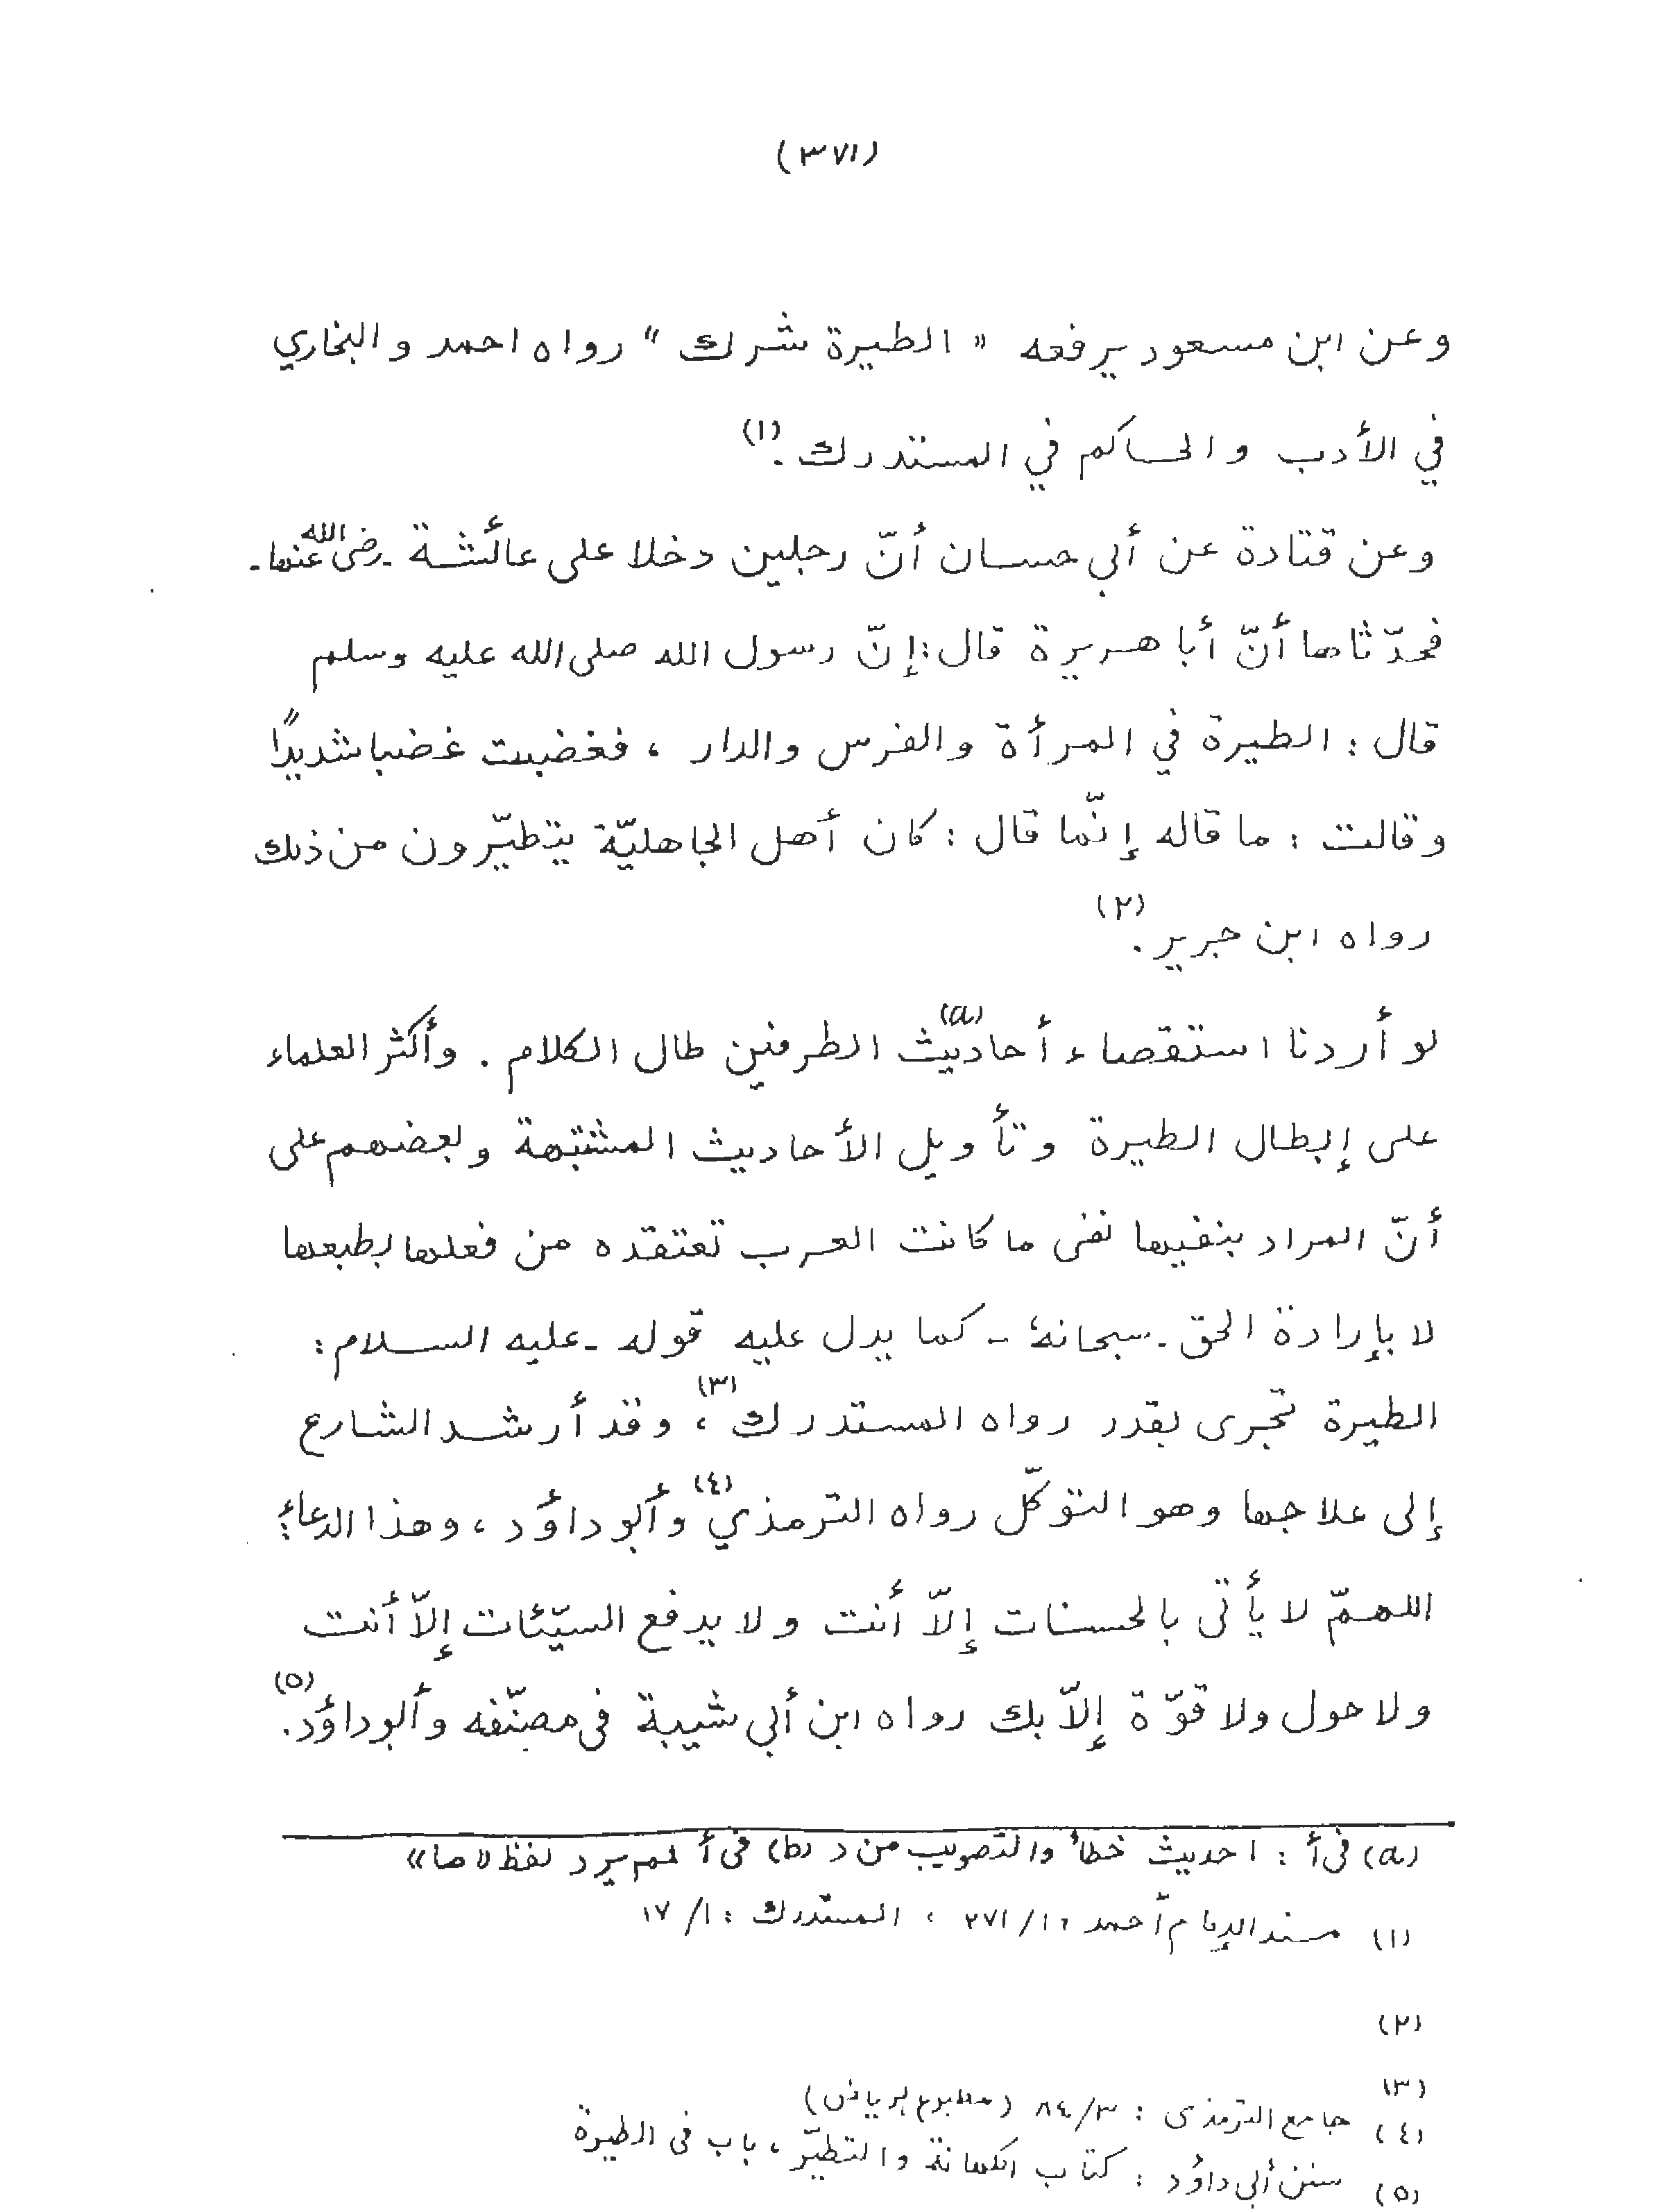 (٣٧١)
وعن ابن مسعود يرفعه "الطيرة شرك" رواه احمد والبخاري
في الأدب والحاكم في المستدرك.(١)
وعن قتادة عن أبي حسان أنّ رجلين دخلا على عائشة - رضى الله عنها -
فحدّثاها أنّ أبا هريرة قال: إنّ رسول الله صلى الله عليه وسلم
قال: الطيرة في المرأة والفرس والدار ، فغضبت غضبا شديدًا
وقالت: ما قاله إنّما قال: كان أهل الجاهليّة يتطيّرون من ذلك
رواه ابن جرير.(٢)
لو أردنا استقصاء أحاديث(a) الطرفين طال الكلام. وأكثر العلماء
على إبطال الطيرة وتأويل الأحاديث المشتبهة وبعضهم على
أنّ المراد بنفيها نفى ما كانت العرب تعتقده من فعلها بطبعها
لا بإرادة الحق - سبحانه - كما يدل عليه قوله - عليه السلام:
الطيرة تجرى بقدر رواه المستدرك(٣)، وقد أرشد الشارع
إلى علاجها وهو التوكّل رواه الترمذي(٤) وأبوداؤد ، وهذا الدعاء:
اللهمّ لا يأتى بالحسنات إلاّ أنت ولا يدفع السيّئات إلاّ أنت
ولا حول ولا قوّة إلاّ بك رواه ابن أبي شيبة فى مصنّفه وأبوداؤد.(٥)
(a) فى أ: احديث خطأ والتصويب من د (b) فى أ لم يرد لفظ «ما»
(١) مسند الإمام أحمد ٢٧١/١ ، المستدرك: ١٧/١
(٢)
(٣)
(٤) جامع الترمذى: ٨٤/٣ (مطبوع الرياض)
(٥) سنن أبى داؤد: كتاب الكهانة والتطيّر ، باب فى الطيرة